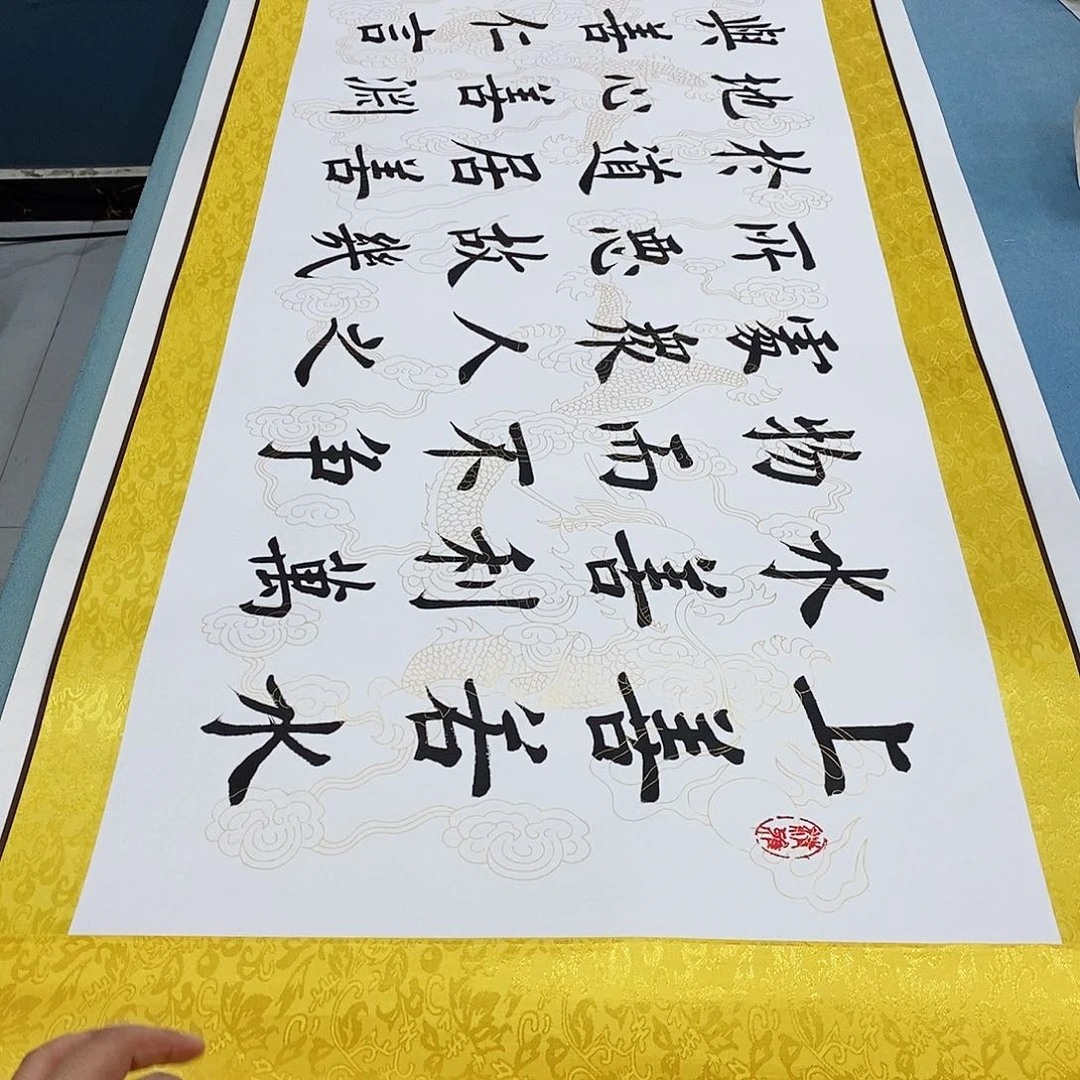 上善若水
水善利萬
物而不争
處衆人之
所惡故幾
於道居善
地心善淵
與善仁言